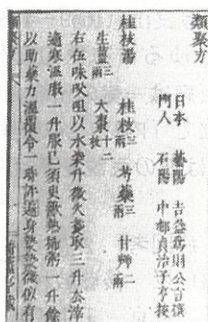 類聚方
日本 藝陽 吉益為則公言撰
門人 石陽 中邨貞治子亨校
桂枝湯
桂枝三兩 芍藥三兩 甘艸二兩
生薑三兩 大棗十二枚
右五味㕮咀以水七升微火煑取三升去滓
適寒溫服一升服已須臾歠熱稀粥一升餘
以助藥力溫覆令一時許遍身漐漐微似有